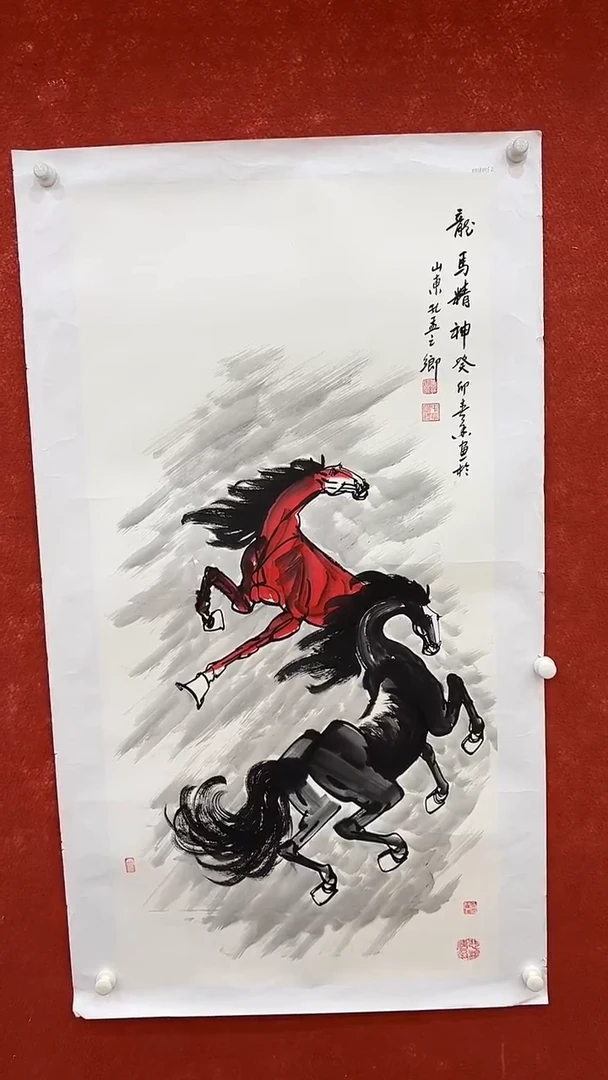 龍馬精神癸卯春末画於
山東孔孟之鄉